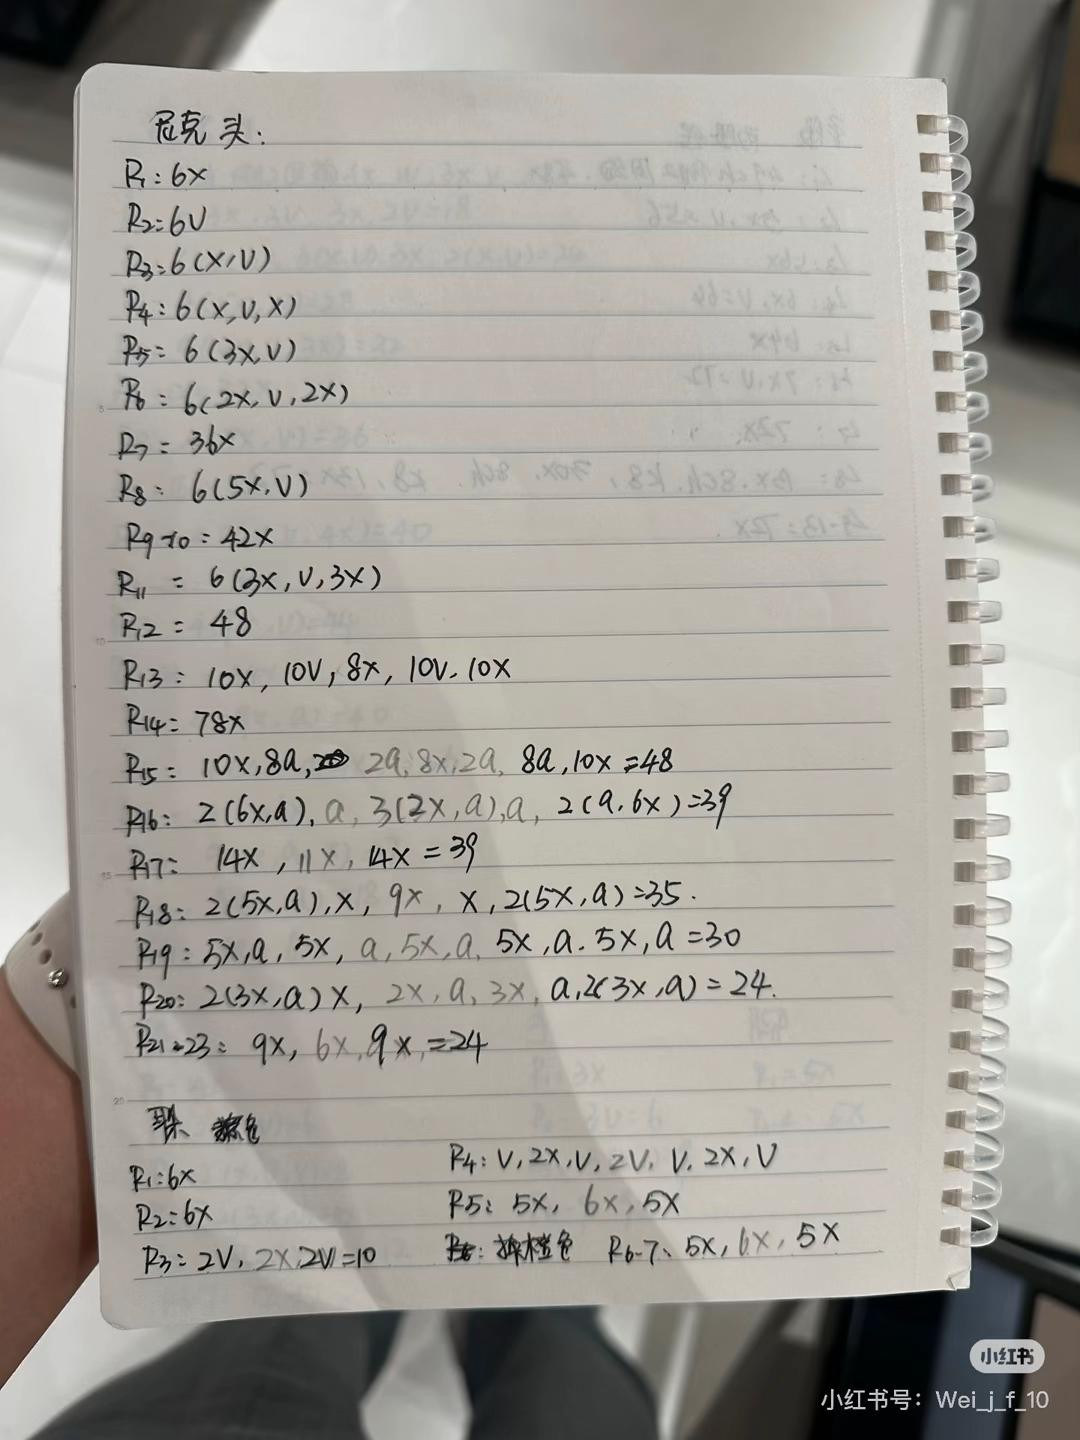 尼克头:
R1:6X
R2:6V
R3:6(X,V)
R4:6(X,V,X)
R5:6(3X,V)
R6:6(2X,V,2X)
R7=36X
R8:6(5X,V)
R9-10:42X
R11=6(3X,V,3X)
R12=48
R13:10X,10V,8X,10V.10X
R14=78X
R15:10X,8a, 2a,8X,2a, 8a,10X=48
R16:2(6X,a),a,3(2X,a),a,2(a,6X)=39
R17:14X,11X,14X=39
R18:2(5X,a),X,9X,X,2(5X,a)=35.
R19:5X,a,5X,a,5X,a,5X,a.5X,a=30
R20:2(3X,a)X,2X,a,3X,a,2(3X,a)=24.
R21-23:9X,6X,9X,=24
棕色
R1:6X
R2:6X
R3:2V,2X,2V=10
R4:V,2X,V,2V,V.2X,V
R5:5X,6X,5X
换橙色 R6-7、5X,6X,5X
小红书
小红书号：Wei_j_f_10